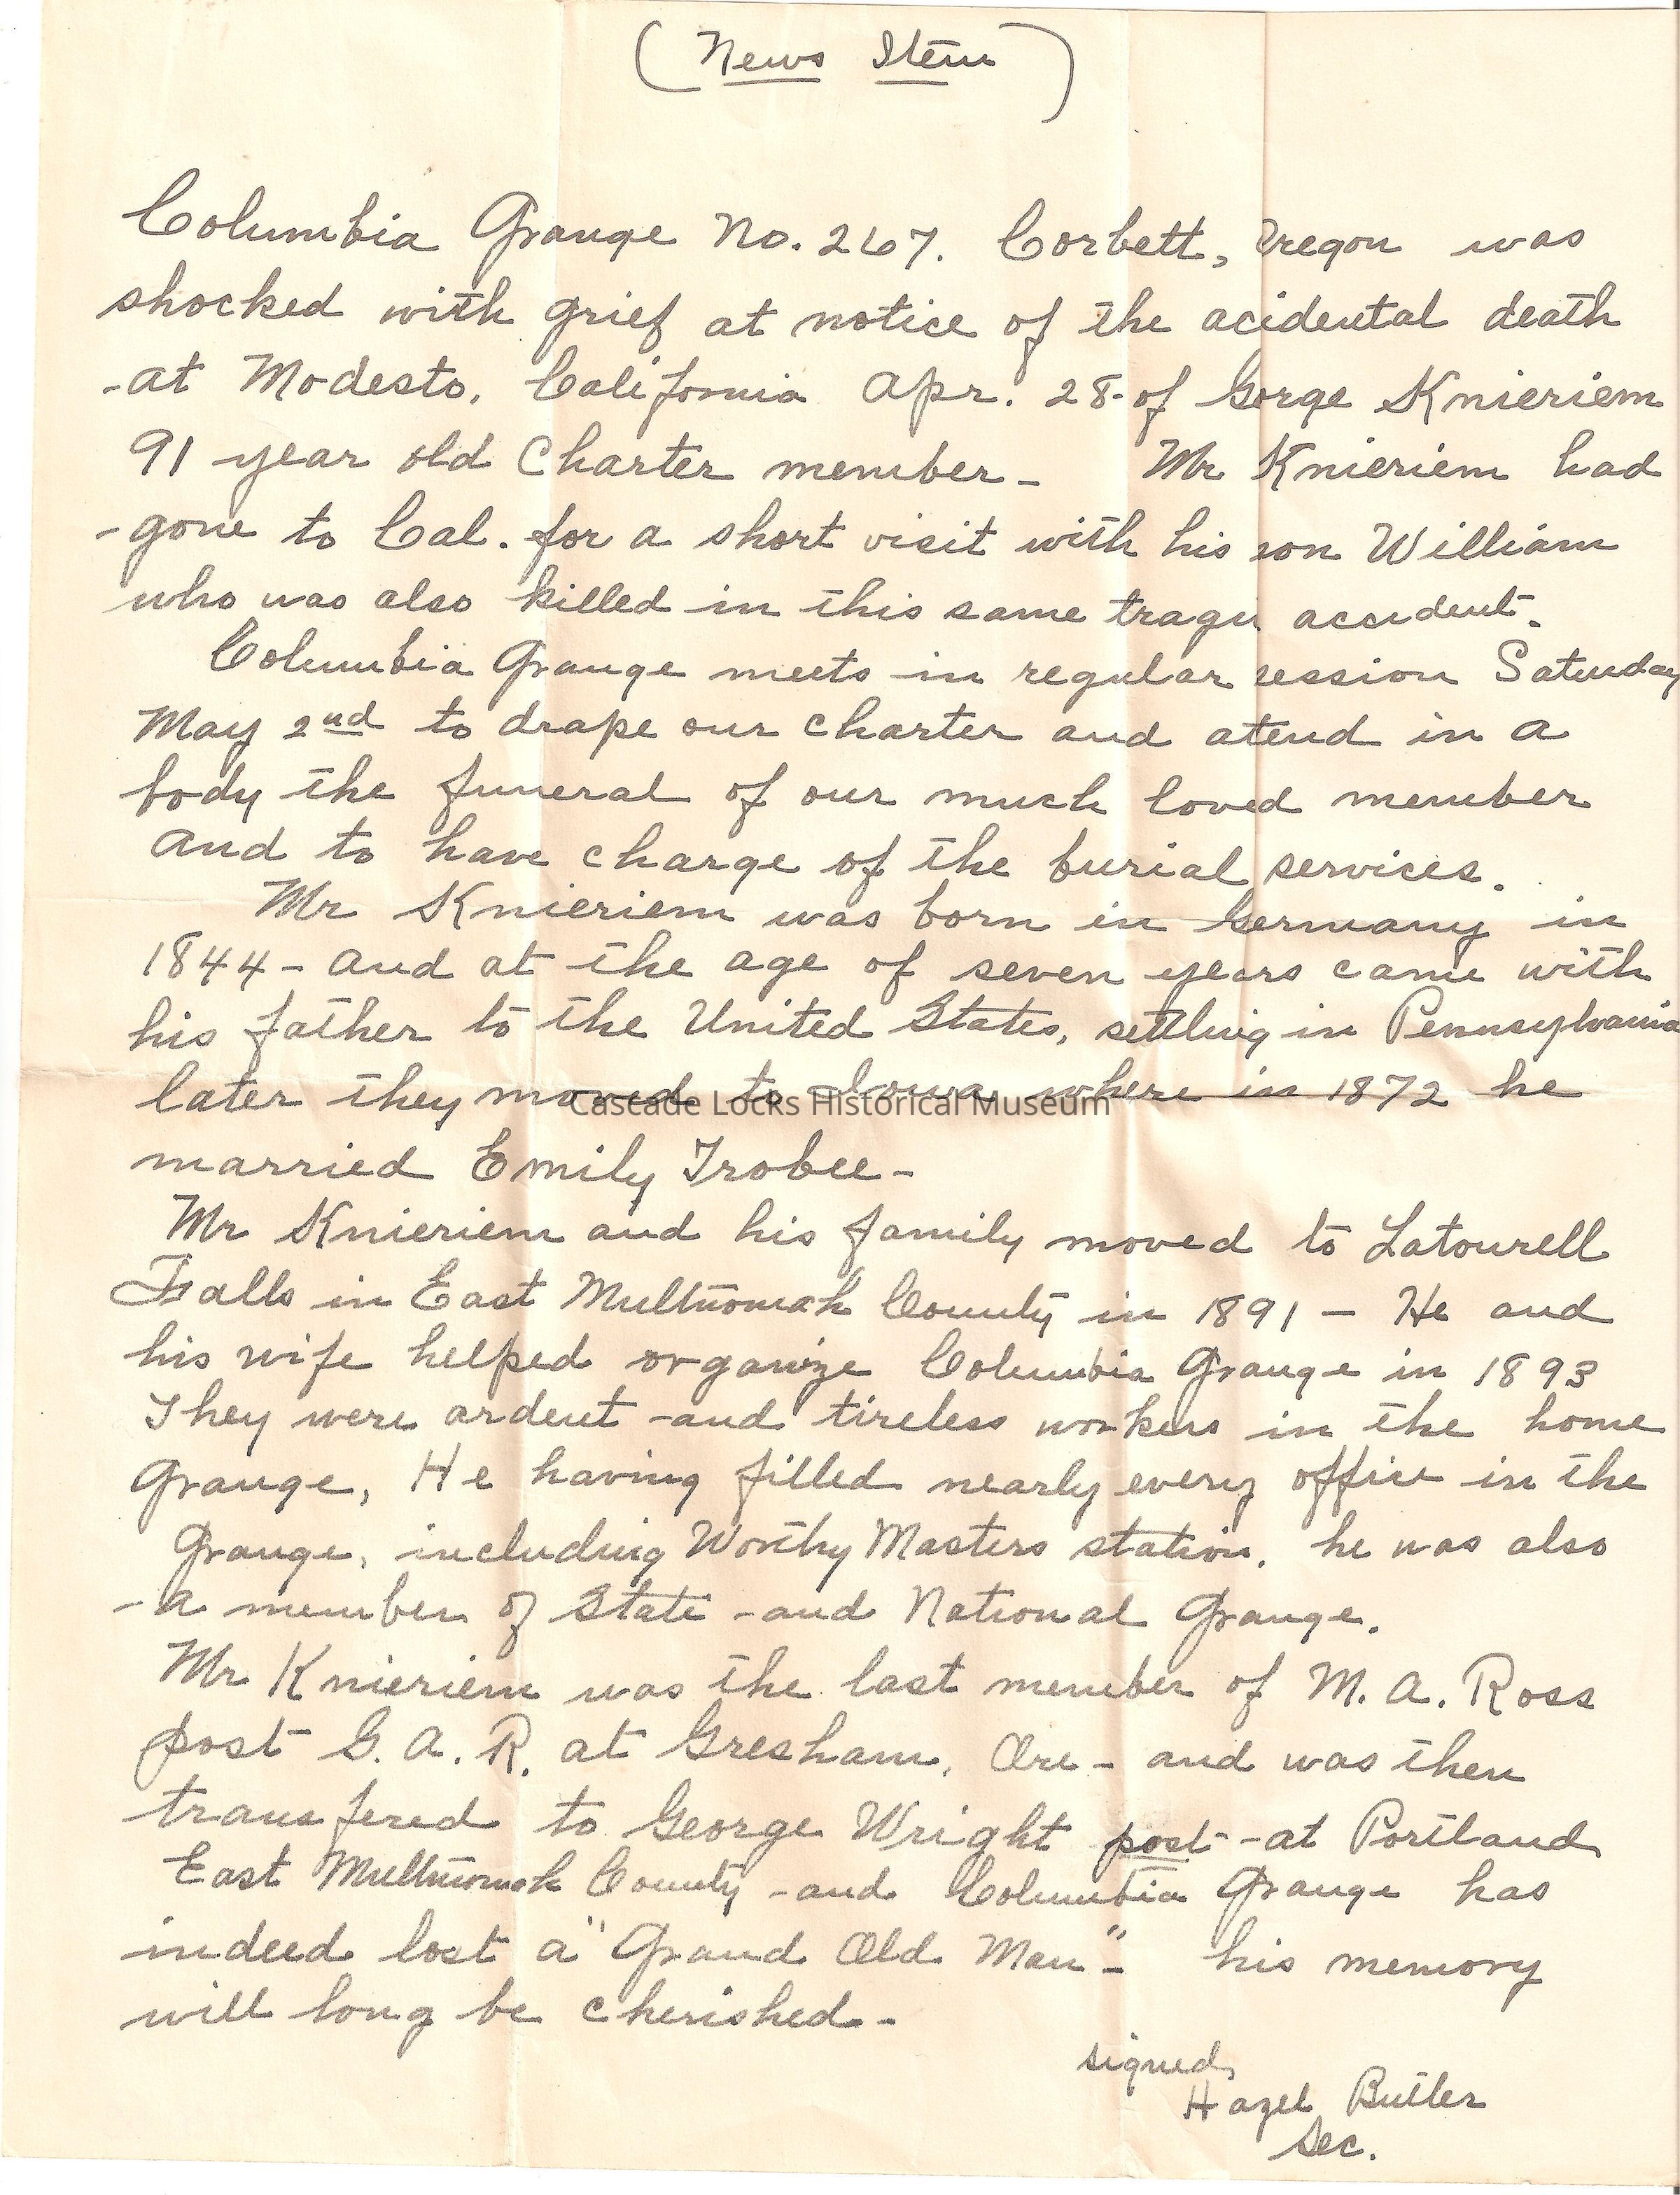 (News Item)
Columbia Grange No. 267. Corbett, Oregon was
shocked with grief at notice of the acidental death
at Modesto, California Apr. 28 of Gorge Knieriem
91 year old Charter member - Mr Knieriem had
gone to Cal. for a short visit with his son William
who was also killed in this same tragic accident.
Columbia Grange meets in regular session Saturday
May 2nd to drape our charter and atend in a
body the funeral of our much loved member
and to have charge of the burial services.
Mr Knieriem was born in Germany in
1844 - and at the age of seven years came with
his father to the United States, settling in Pennsylvania
later they moved to Iowa where in 1872 he
Cascade Locks Historical Museum
married Emily Trobee -
Mr Knieriem and his family moved to Latourell
Falls in East Multnomah County in 1891 - He and
his wife helped organize Columbia Grange in 1893
They were ardent and tireless workers in the home
Grange, He having filled nearly every office in the
Grange, including Worthy Masters station, he was also
a member of State and National Grange.
Mr Knieriem was the last member of M. A. Ross
post G. A. R. at Gresham, Ore - and was then
transfered to George Wright post at Portland
East Multnomah County and Columbia Grange has
indeed lost a "Grand Old Man" - his memory
will long be cherished -
signed,
Hazel Butler
Sec.